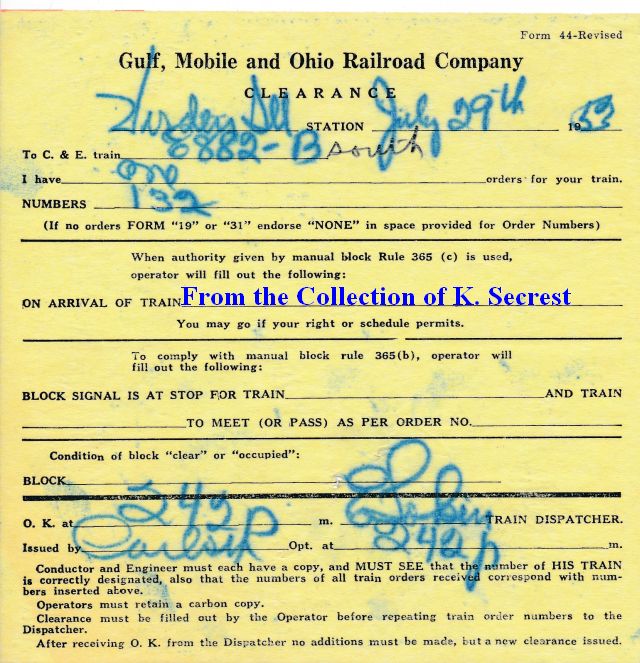 Form 44-Revised
Gulf, Mobile and Ohio Railroad Company
CLEARANCE
Virden Ill STATION July 29th 1953
To C. & E. train 8882-B south
I have one orders for your train.
NUMBERS 132
(If no orders FORM "19" or "31" endorse "NONE" in space provided for Order Numbers)
When authority given by manual block Rule 365 (c) is used,
operator will fill out the following:
ON ARRIVAL OF TRAIN From the Collection of K. Secrest
You may go if your right or schedule permits.
To comply with manual block rule 365(b), operator will
fill out the following:
BLOCK SIGNAL IS AT STOP FOR TRAIN AND TRAIN
TO MEET (OR PASS) AS PER ORDER NO.
Condition of block "clear" or "occupied":
BLOCK
O. K. at 242 P m. TRAIN DISPATCHER.
Issued by Opt. at 242 p m.
Conductor and Engineer must each have a copy, and MUST SEE that the number of HIS TRAIN
is correctly designated, also that the numbers of all train orders received correspond with num-
bers inserted above.
Operators must retain a carbon copy.
Clearance must be filled out by the Operator before repeating train order numbers to the
Dispatcher.
After receiving O. K. from the Dispatcher no additions must be made, but a new clearance issued.